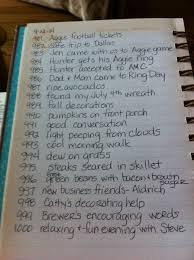 981 Aggie football tickets
982 safe trip to Dallas
983 Jen came with us to Aggie game
984 Hunter gets his Aggie ring
985 Hunter accepted to AMC
986 Dad + Mom came to Ring Day
987 ripe avocados
988 found my July 4th wreath
989 fall decorations
990 pumpkins on front porch
991 good conversation
992 light peeping from clouds
993 cool morning walk
994 dew on grass
995 steaks seared in skillet
996 green beans with bacon & brown sugar
997 new business friends - Aldrich
998 Cathy's decorating help
999 Brewer's encouraging words
1000 relaxing + fun evening with Steve